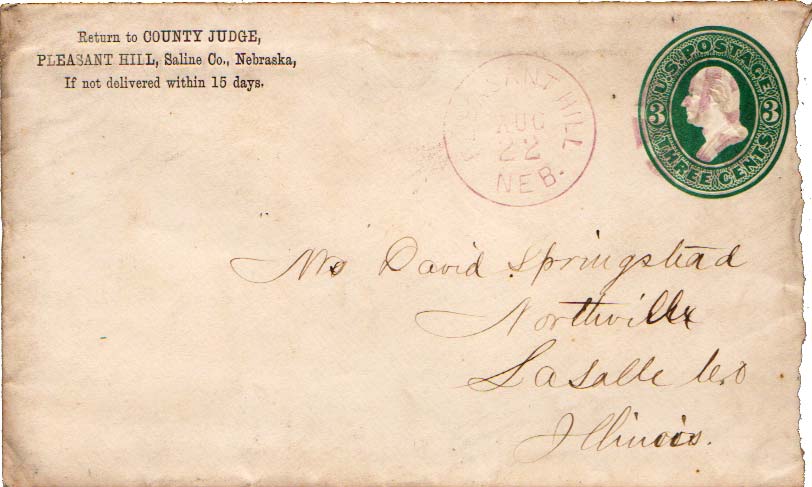 Return to COUNTY JUDGE,
PLEASANT HILL, Saline Co., Nebraska,
If not delivered within 15 days.
PLEASANT HILL
AUG
22
NEB.
U.S. POSTAGE
3 3
THREE CENTS
Mrs David Springstead
Northville
LaSalle Co
Illinois.